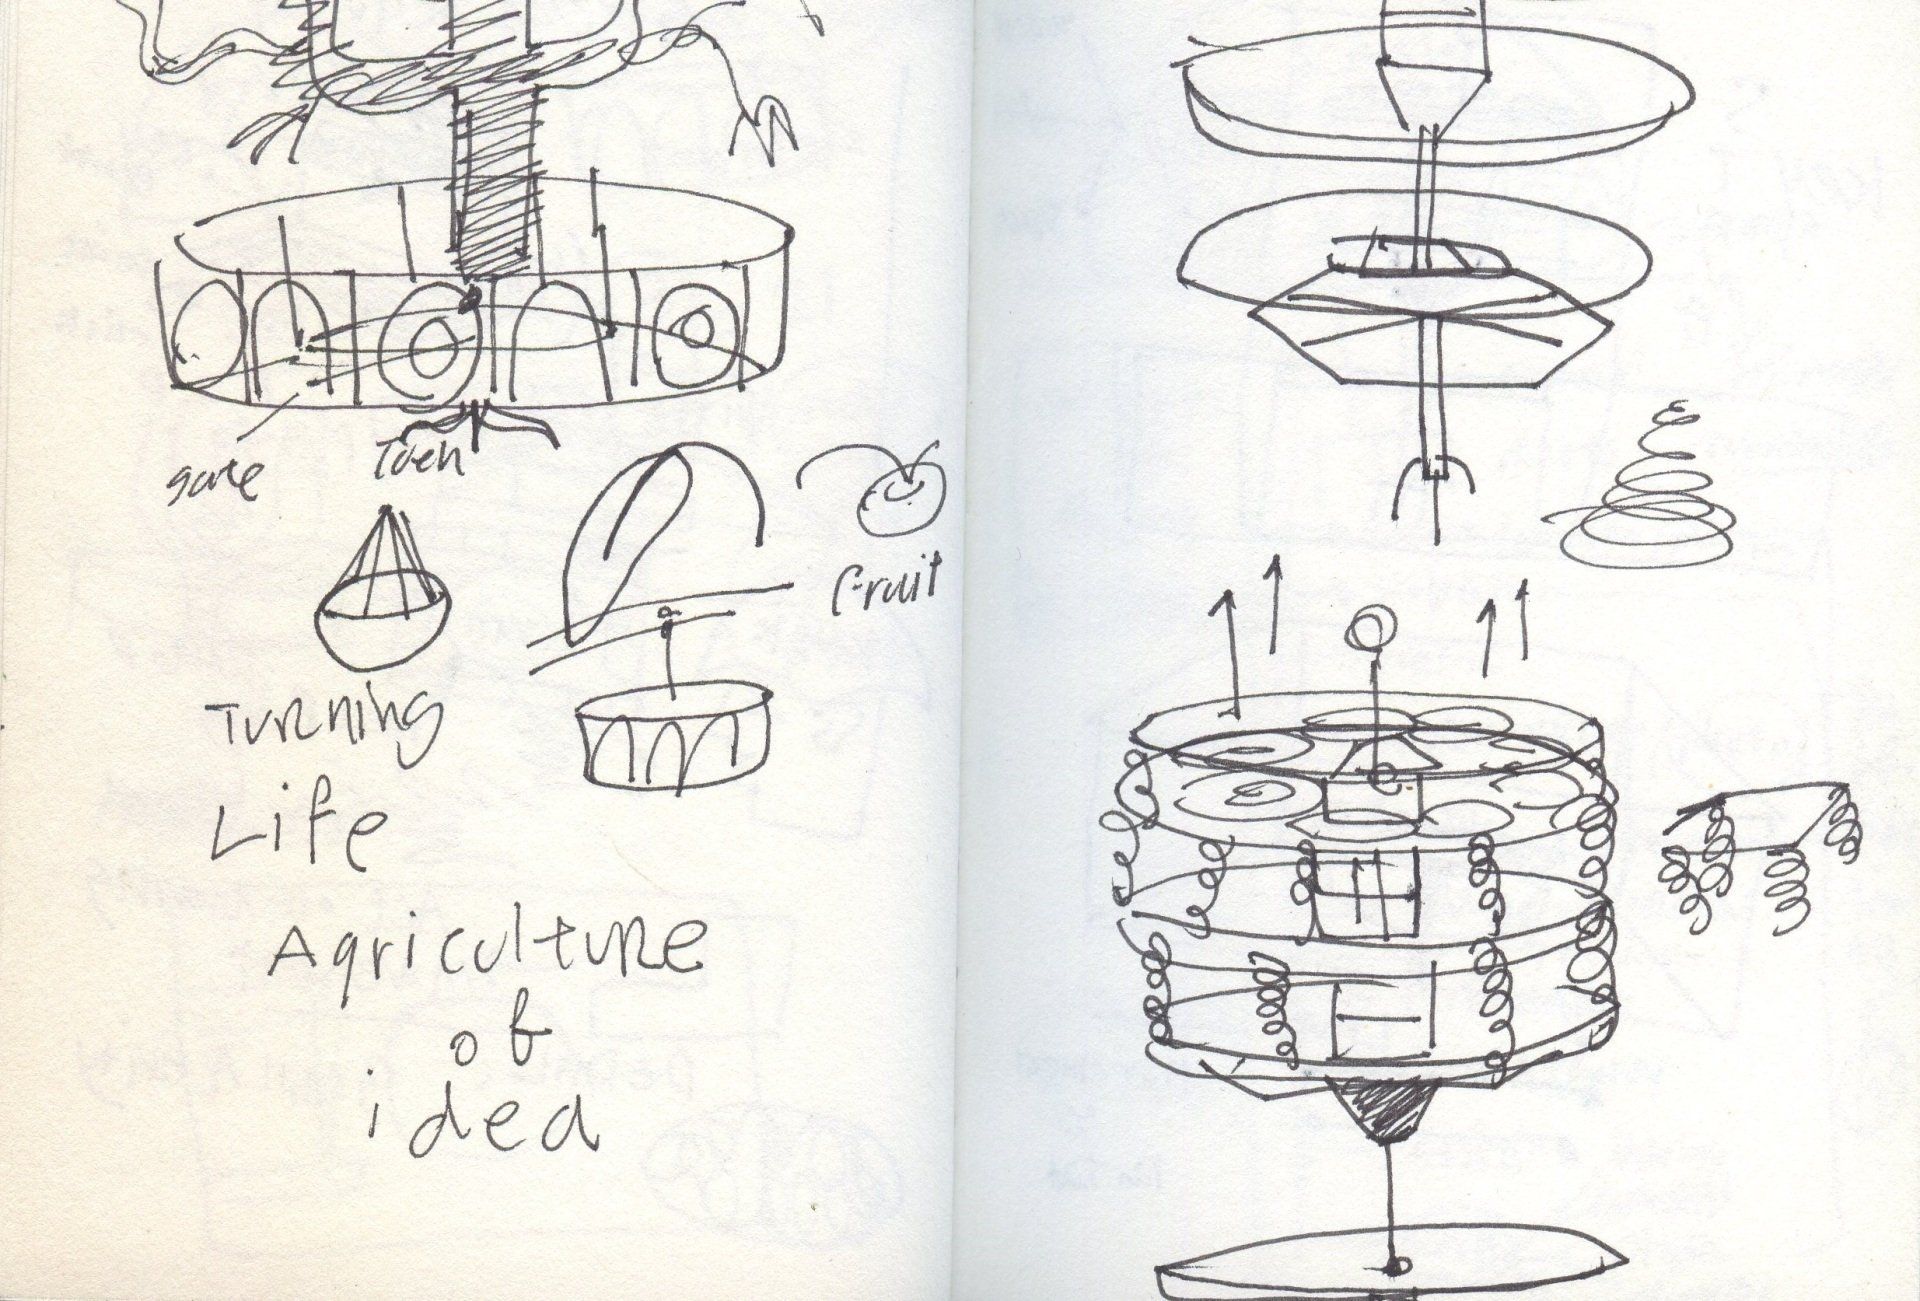 gate
fruit
Turning
Life
Agriculture
of
idea